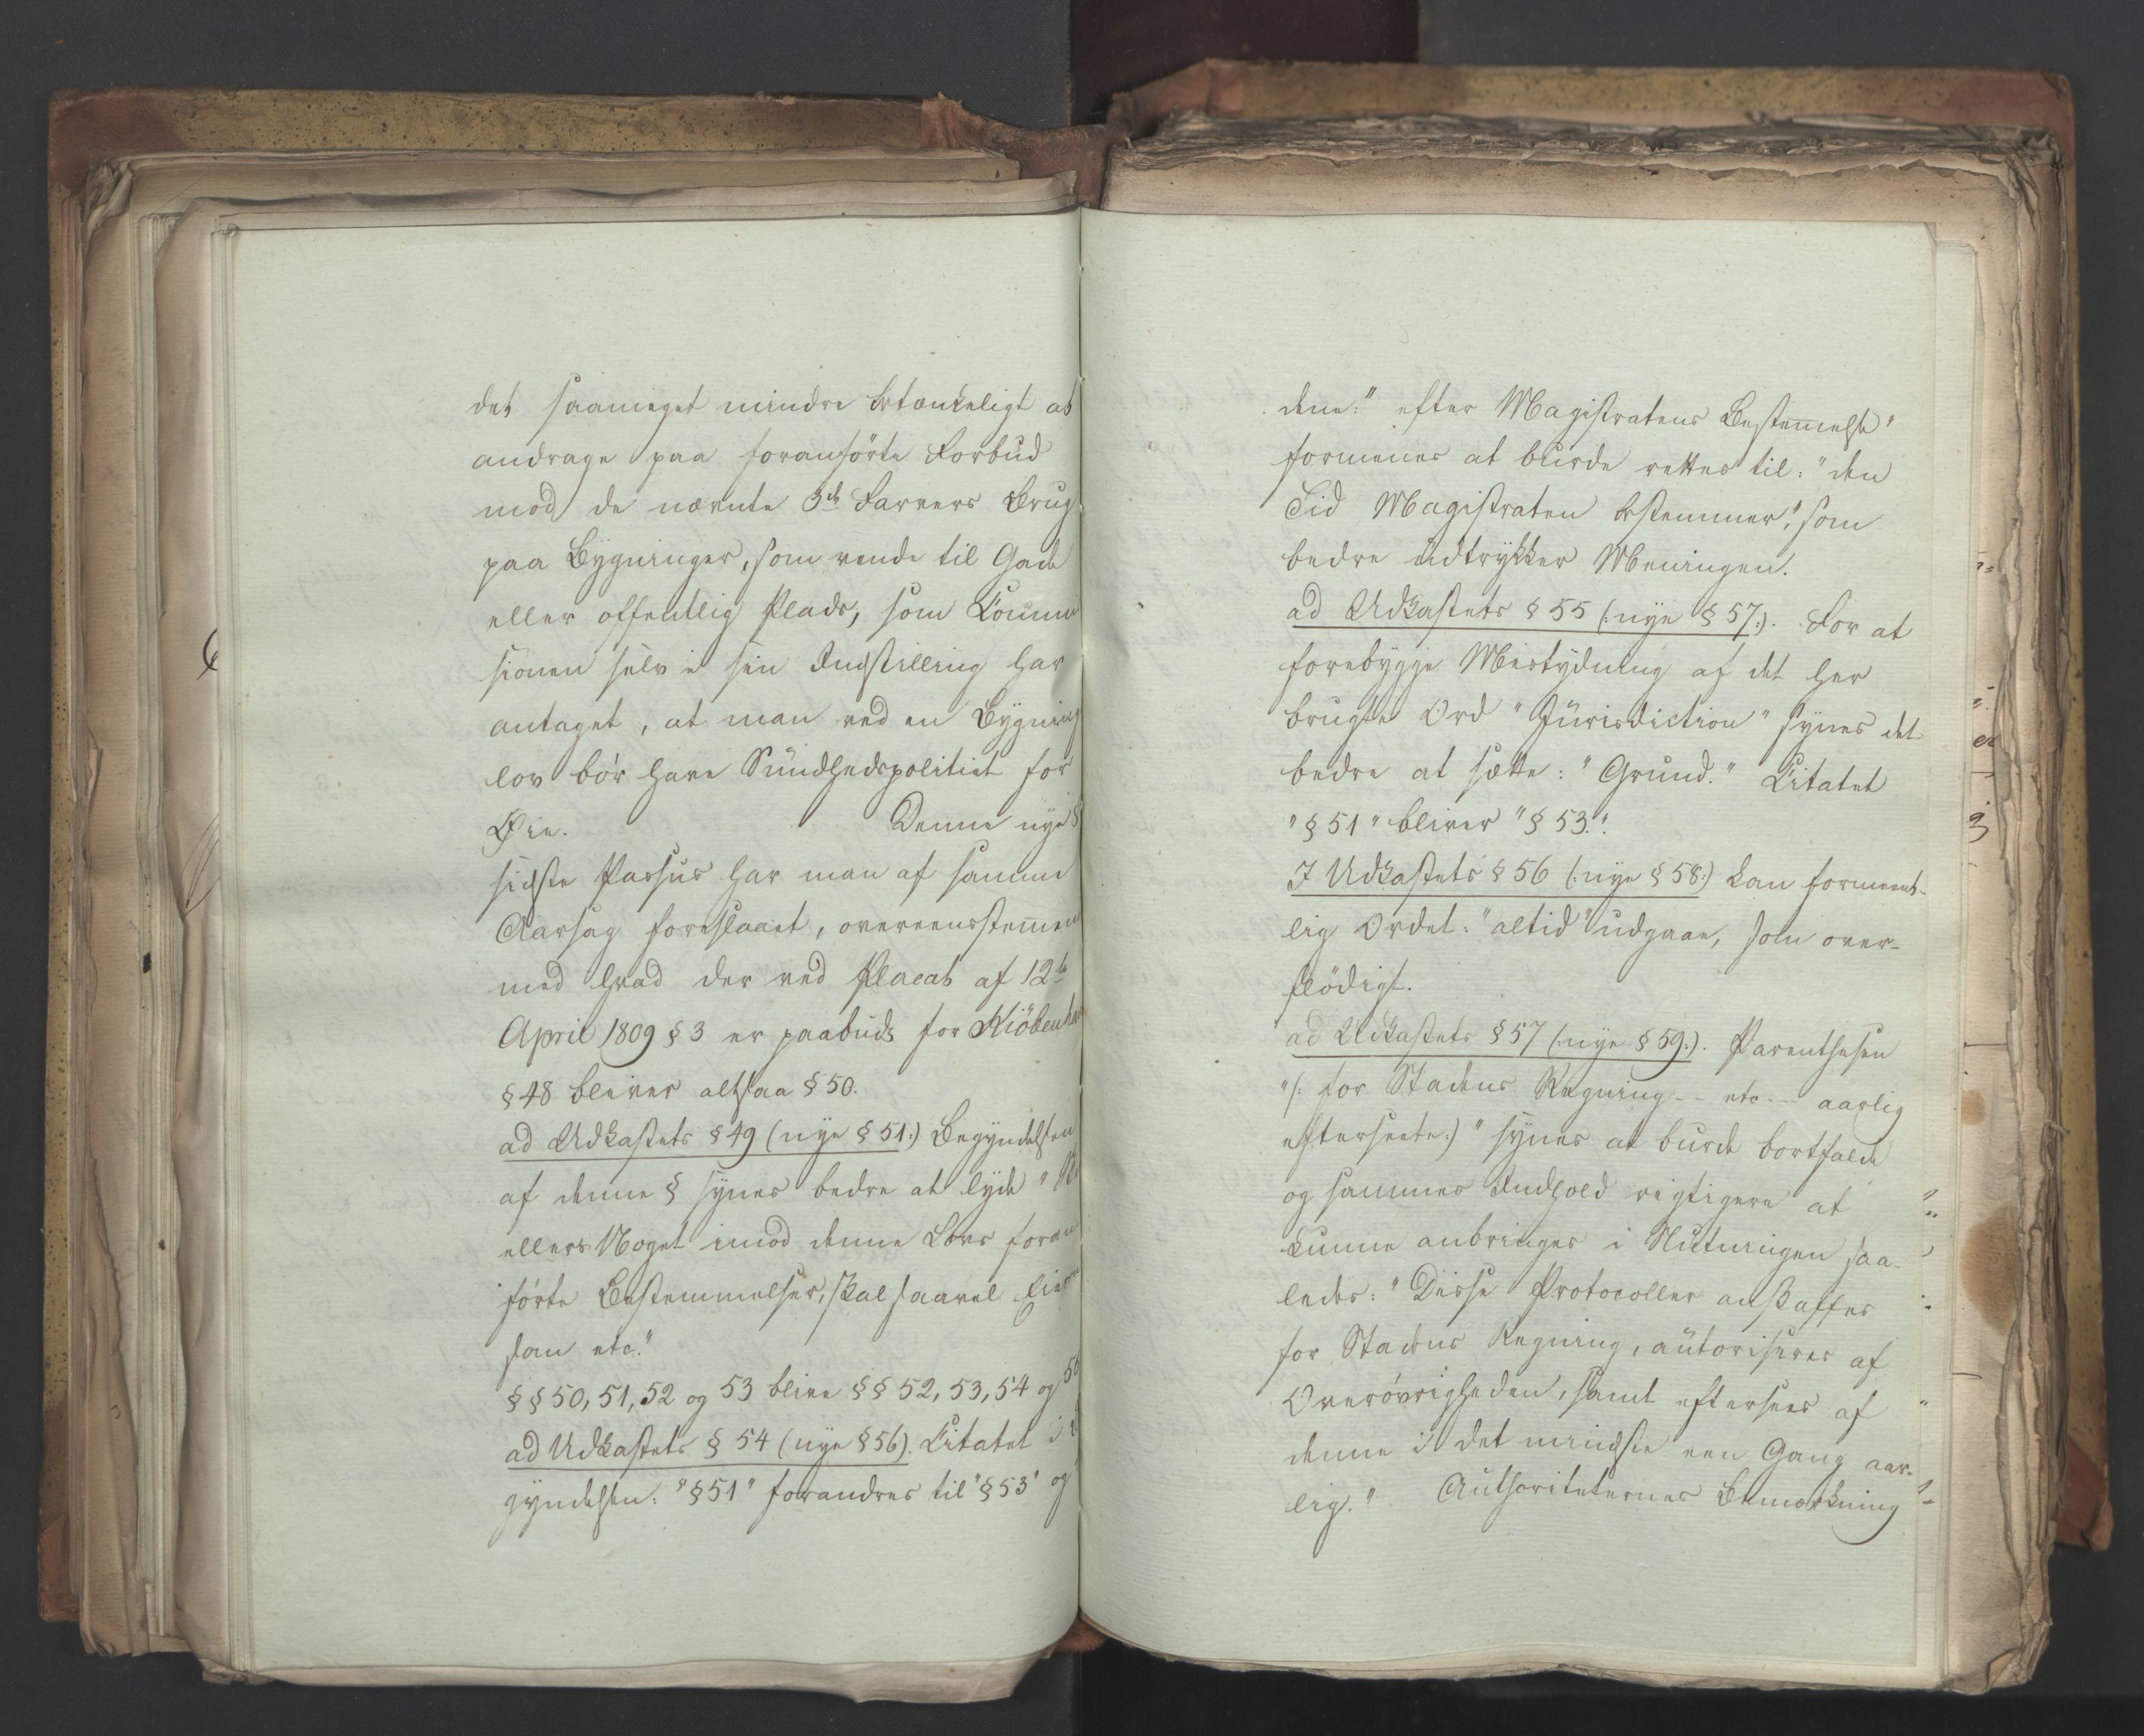 det saameget mindre betænkeligt at
andrage paa foranførte Forbud
mod de nævnte 3de Farvers Brug
paa Bygninger, som vende til Gade
eller offentlig Plads, som Commi
sionen selv i sin Indstilling har
antaget, at man ved en Bygning
lov bør have Sundhedspolitiet for
Øie. Denne nye §
sidste Passus har man af samme
Aarsag foreslaaet, overeensstem̅en
med hvad der ved Placat af 12te
April 1809 § 3 er paabudt for Kiöbenhav
§ 48 bliver altsaa § 50.
ad Udkastets § 49 (nye § 51:) Begyndelsen
af denne § synes bedre at lyde "
ellers Noget imod denne Lovs foran
førte Bestemmelser, skal saavel Eier
som etc."
§ § 50, 51, 52 og 53 blive § § 52, 53, 54 og 55
ad Udkastets § 54 (nye § 56). Citatet i
gyndelsen: "§ 51" forandres til "§ 53" og
dene: "efter Magistratens Bestem̅else"
formenes at burde rettes til: "den
Tid Magistraten bestemmer", som
bedre udtrykker Meningen.
ad Udkastets § 55 (: nye § 57:). For at
forebygge Mistydning af det her
brugte Ord "Jurisdiction" synes det
bedre at sætte: "Grund." Citatet
"§ 51" bliver "§ 53".
I Udkastets § 56 (: nye § 58:) kan forment-
lig Ordet: "altid" udgaae, som over-
flödigt.
ad Udkastets § 57 (: nye § 59:). Parenthesen
"(: for Stadens Regning -- etc -- aarlig
efterseete:)" synes at burde bortfalde
og sammes Indhold rigtigere at
kunne anbringes i Slutningen saa-
ledes: "Disse Protocoller anskaffes
for Stadens Regning, autoriseres af
Overøvrigheden, samt eftersees af
denne i det mindste een Gang aar-
lig." Authoriteternes Bemærkning